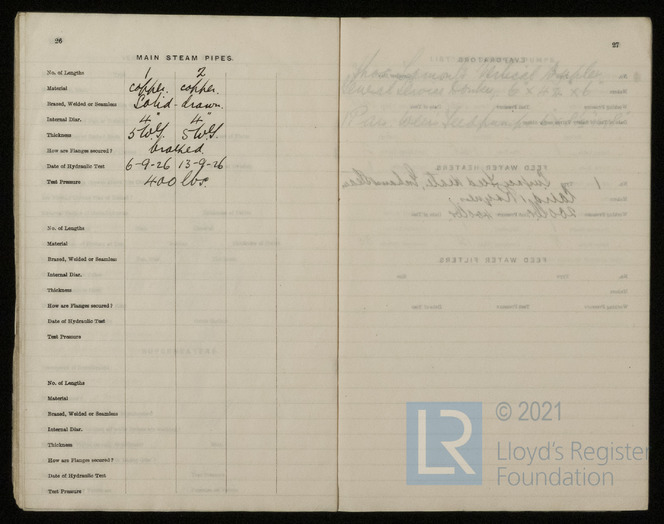 26
MAIN STEAM PIPES.
No. of Lengths 1 2
Material copper. copper.
Brazed, Welded or Seamless Solid - drawn.
Internal Diar. 4" 4"
Thickness 5 W.G. 5 W.G.
How are Flanges secured? brazed.
Date of Hydraulic Test 6-9-26 13-9-26
Test Pressure 400 lbs.
No. of Lengths
Material
Brazed, Welded or Seamless
Internal Diar.
Thickness
How are Flanges secured?
Date of Hydraulic Test
Test Pressure
No. of Lengths
Material
Brazed, Welded or Seamless
Internal Diar.
Thickness
How are Flanges secured?
Date of Hydraulic Test
Test Pressure
27
LR © 2021
Lloyd's Register
Foundation